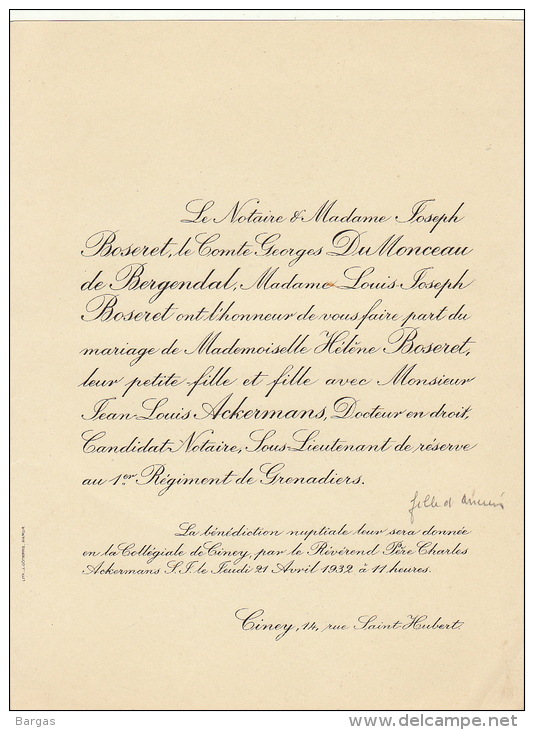 Le Notaire & Madame Joseph
Boseret, le Comte Georges Du Monceau
de Bergendal, Madame Louis-Joseph
Boseret ont l'honneur de vous faire part du
mariage de Mademoiselle Hélène Boseret,
leur petite-fille et fille avec Monsieur
Jean-Louis Ackermans, Docteur en droit,
Candidat-Notaire, Sous-Lieutenant de réserve
au 1er Régiment de Grenadiers.
fille d
La bénédiction nuptiale leur sera donnée
en la Collégiale de Ciney, par le Révérend Père Charles
Ackermans S.J. le Jeudi 21 Avril 1932 à 11 heures.
Ciney, 14, rue Saint-Hubert.
Bargas
delcampe.net